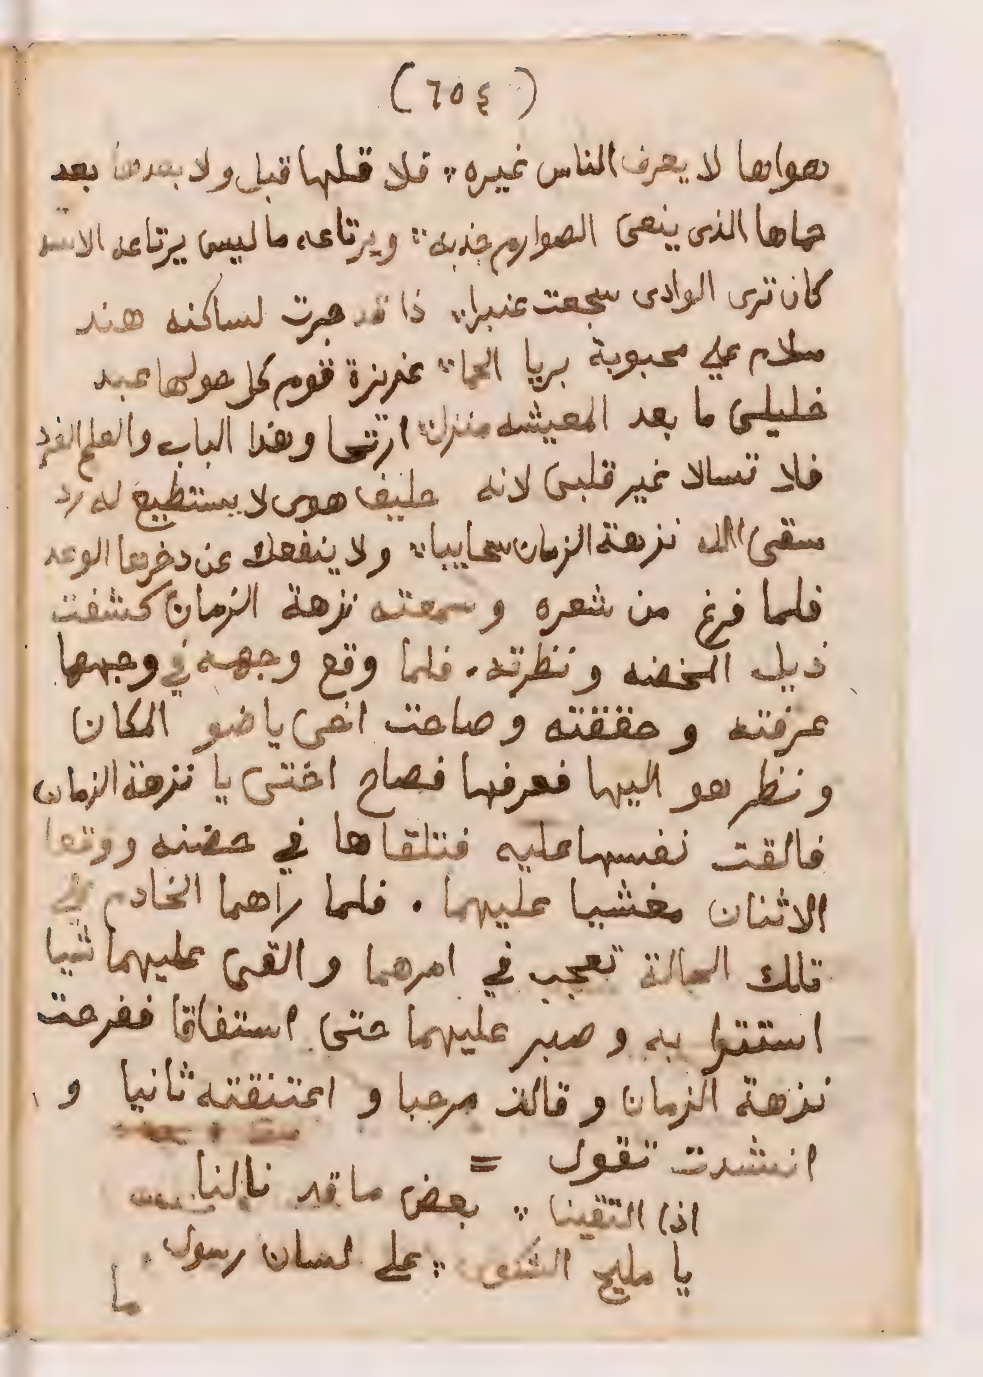 ( ٦٥٤ )
بهواها لا يعرف الناس غيره ؞ فلا قبلها قبل ولا بعدها بعد
حماها الذى ينعى الصوارم جذبه ؞ ويرتاعه ما ليس يرتاعه الاسد
كان ترى الوادى سجعت عنبرا ؞ ذا قد جرت لساكنه هند
سلام على محبوبة بربا الحما ؞ عزيزة قوم كل حولها عبد
خليلى ما بعد المعيشه منزل ؞ ارتى وهذا الباب والعلم الفرد
فلا تسالا غير قلبى لانه حليف هوى لا يستطيع له رد
سقى الله نزهة الزمان سحايبا ؞ ولا ينفعك عن دخرها الوعد
فلما فرغ من شعره وسمعته نزهة الزمان كشفت
ذيل المحفه ونظرته . فلما وقع وجهه في وجهها
عرفته و حققته وصاحت اخى يا ضو المكان
ونظر هو اليها فعرفها فصاح اختى يا نزهة الزمان
فالقت نفسها عليه فتلقاها في حضنه ووقعا
الاثنان مغشيا عليهما . فلما راهما الخادم على
تلك الحالة تعجب في امرهما والقى عليهما شيا
استترا به وصبر عليهما حتى استفاقا ففرحت
نزهة الزمان وقالت مرحبا و اعتنقته ثانيا و
انشدت تقول =
اذا التقينا ؞ بعض ما قد نالنا
يا مليح الشكوى ؞ على لسان رسول
ما